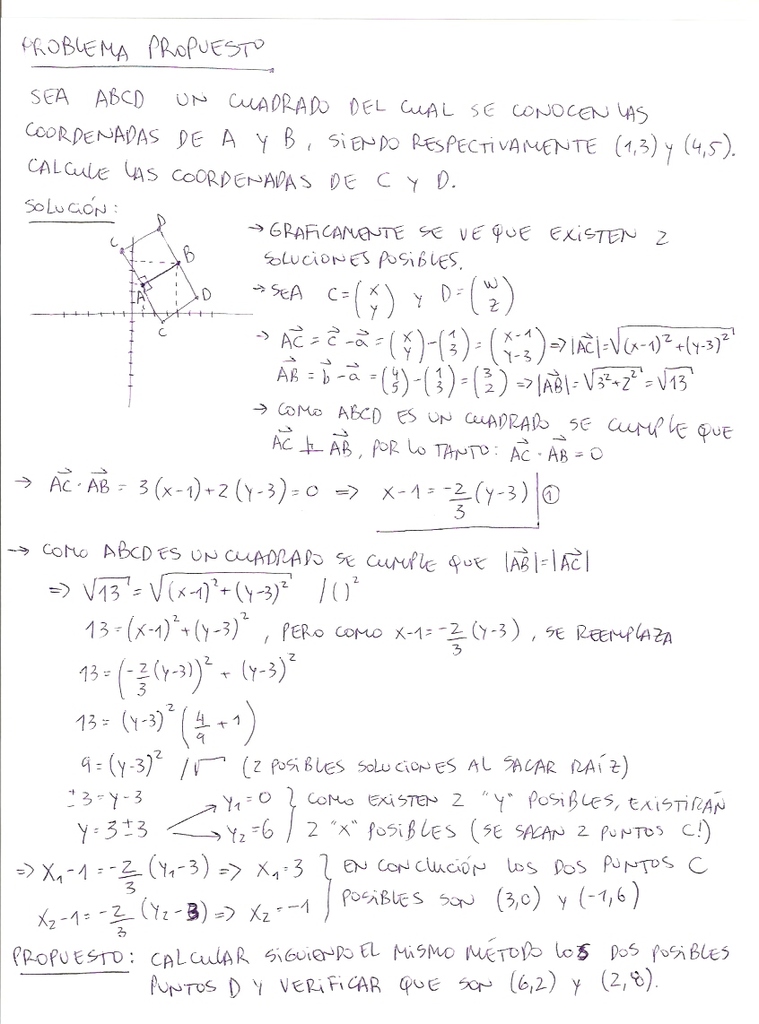 PROBLEMA PROPUESTO
SEA ABCD UN CUADRADO DEL CUAL SE CONOCEN LAS
COORDENADAS DE A Y B, SIENDO RESPECTIVAMENTE (1,3) y (4,5).
CALCULE LAS COORDENADAS DE C Y D.
SOLUCIÓN:
D
C
B
A
D
C
→ GRAFICAMENTE SE VE QUE EXISTEN 2
SOLUCIONES POSIBLES.
→ SEA C=(x y) y D=(w z)
→ AC⃗ = c⃗ - a⃗ = (x y) - (1 3) = (x-1 y-3) => |AC⃗|=√((x-1)²+(y-3)²)
AB⃗ = b⃗ - a⃗ = (4 5) - (1 3) = (3 2) => |AB⃗|=√(3²+2²)=√13
→ COMO ABCD ES UN CUADRADO SE CUMPLE QUE
AC⃗ ⊥ AB⃗, POR LO TANTO: AC⃗ · AB⃗ = 0
→ AC⃗ · AB⃗ = 3(x-1)+2(y-3)=0 => x-1=-2/3(y-3) ①
→ COMO ABCD ES UN CUADRADO SE CUMPLE QUE |AB⃗|=|AC⃗|
=> √13=√((x-1)²+(y-3)²) /()²
13=(x-1)²+(y-3)², PERO COMO x-1=-2/3(y-3), SE REEMPLAZA
13=(-2/3(y-3))²+(y-3)²
13=(y-3)²(4/9+1)
9=(y-3)² /√ (2 POSIBLES SOLUCIONES AL SACAR RAÍZ)
±3=y-3
y=3±3
y₁=0
y₂=6
} COMO EXISTEN 2 "y" POSIBLES, EXISTIRÁN
2 "x" POSIBLES (SE SACAN 2 PUNTOS C!)
=> x₁-1=-2/3(y₁-3) => x₁=3
x₂-1=-2/3(y₂-3) => x₂=-1
} EN CONCLUCIÓN LOS DOS PUNTOS C
POSIBLES SON (3,0) y (-1,6)
PROPUESTO: CALCULAR SIGUIENDO EL MISMO MÉTODO LOS DOS POSIBLES
PUNTOS D Y VERIFICAR QUE SON (6,2) y (2,8).